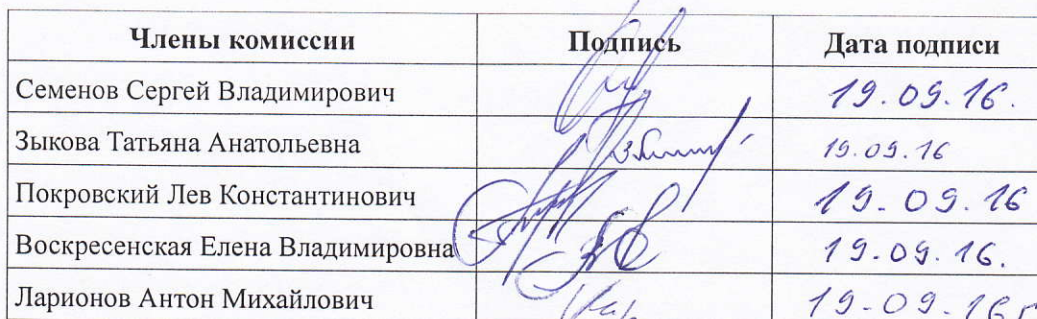 Члены комиссии Подпись Дата подписи
Семенов Сергей Владимирович 19.09.16.
Зыкова Татьяна Анатольевна 19.09.16
Покровский Лев Константинович 19.09.16
Воскресенская Елена Владимировна 19.09.16.
Ларионов Антон Михайлович 19.09.16г